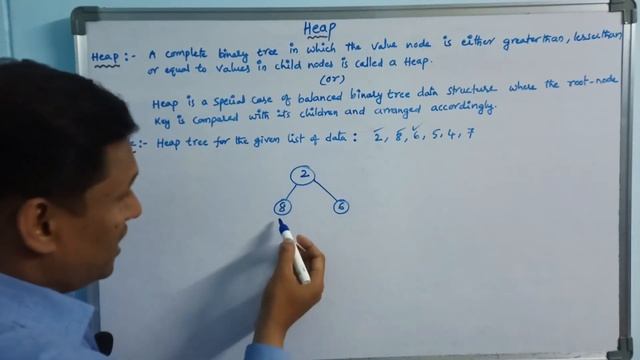 Heap
Heap :- A complete binary tree in which the value node is either greater than, lesser than
or equal to values in child nodes is called a Heap.
(or)
Heap is a special case of balanced binary tree data structure where the root-node
Key is compared with its children and arranged accordingly.
:- Heap tree for the given list of data : 2, 8, 6, 5, 4, 7
2
8 6